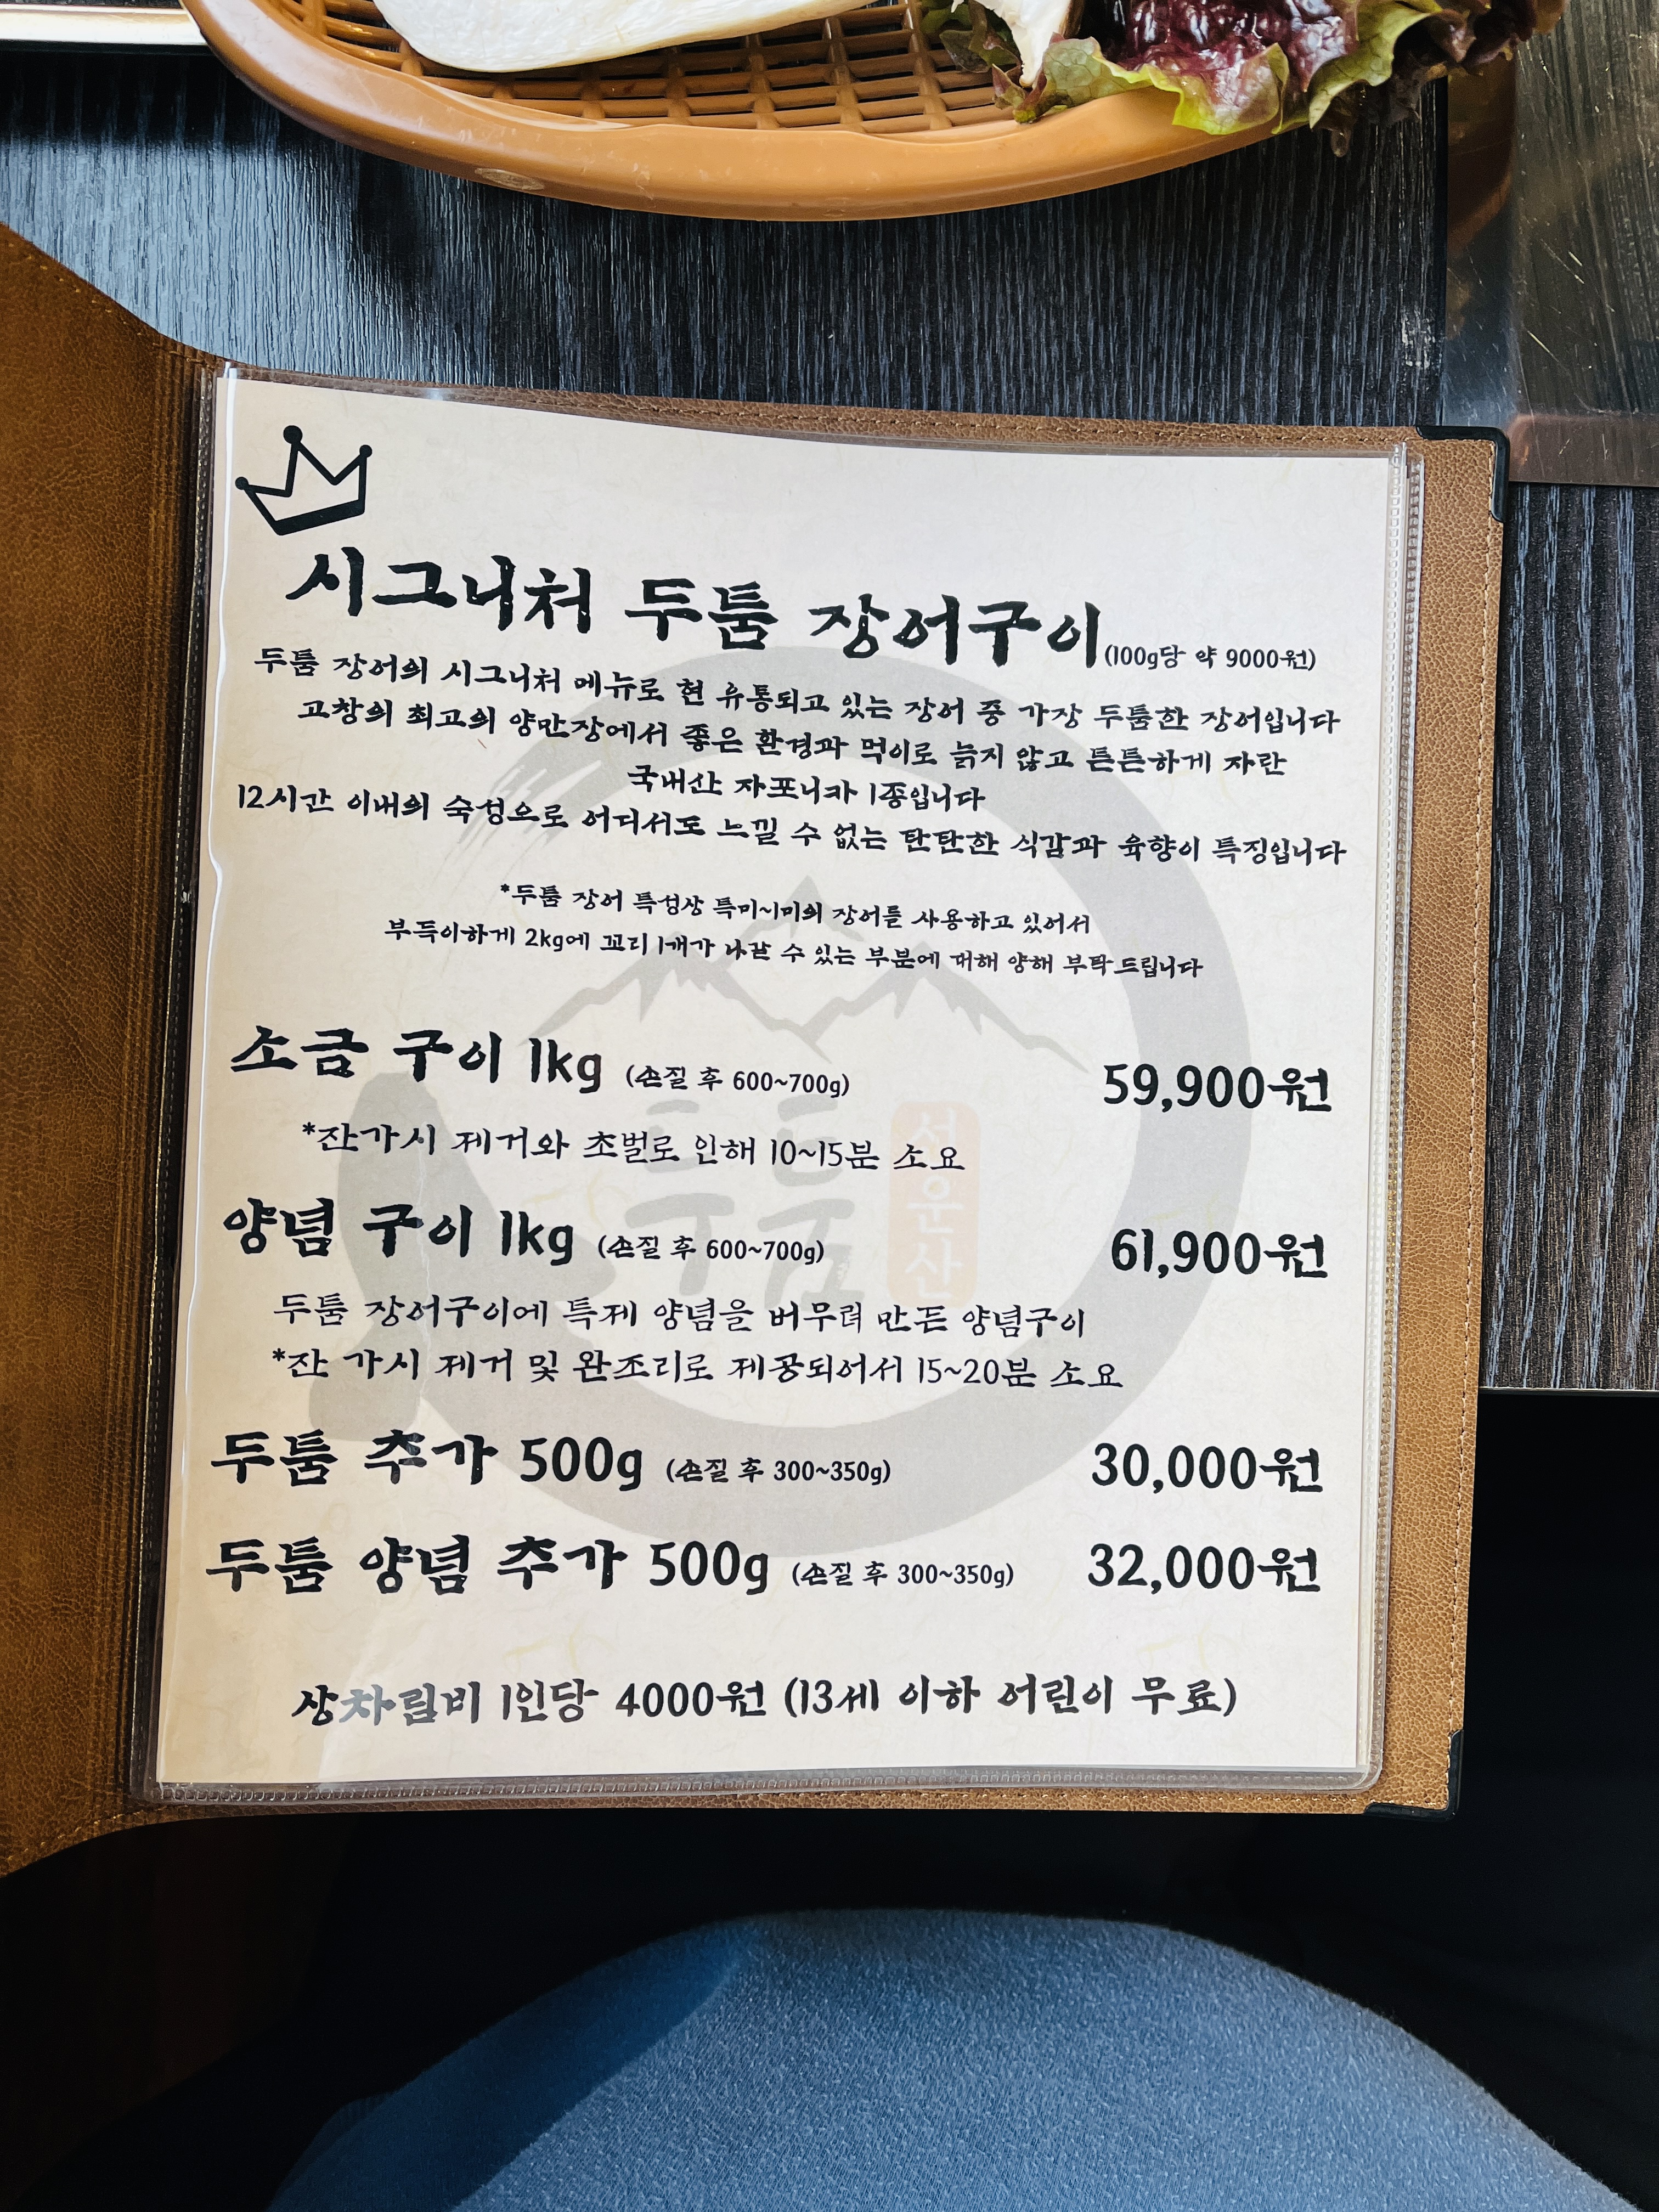 시그니처 두툼 장어구이(100g당 약 9000원)
두툼 장어의 시그니처 메뉴로 현 유통되고 있는 장어 중 가장 두툼한 장어입니다
고창의 최고의 양만장에서 좋은 환경과 먹이로 늙지 않고 튼튼하게 자란
국내산 자포니카 1종입니다
12시간 이내의 숙성으로 어디서도 느낄 수 없는 탄탄한 식감과 육향이 특징입니다
*두툼 장어 특성상 특미~1미의 장어를 사용하고 있어서
부득이하게 2kg에 꼬리 1개가 나갈 수 있는 부분에 대해 양해 부탁드립니다
소금 구이 1kg (손질 후 600~700g) 59,900원
*잔가시 제거와 초벌로 인해 10~15분 소요
양념 구이 1kg (손질 후 600~700g) 61,900원
두툼 장어구이에 특제 양념을 버무려 만든 양념구이
*잔 가시 제거 및 완조리로 제공되어서 15~20분 소요
두툼 추가 500g (손질 후 300~350g) 30,000원
두툼 양념 추가 500g (손질 후 300~350g) 32,000원
상차림비 1인당 4000원 (13세 이하 어린이 무료)
두툼
선운산